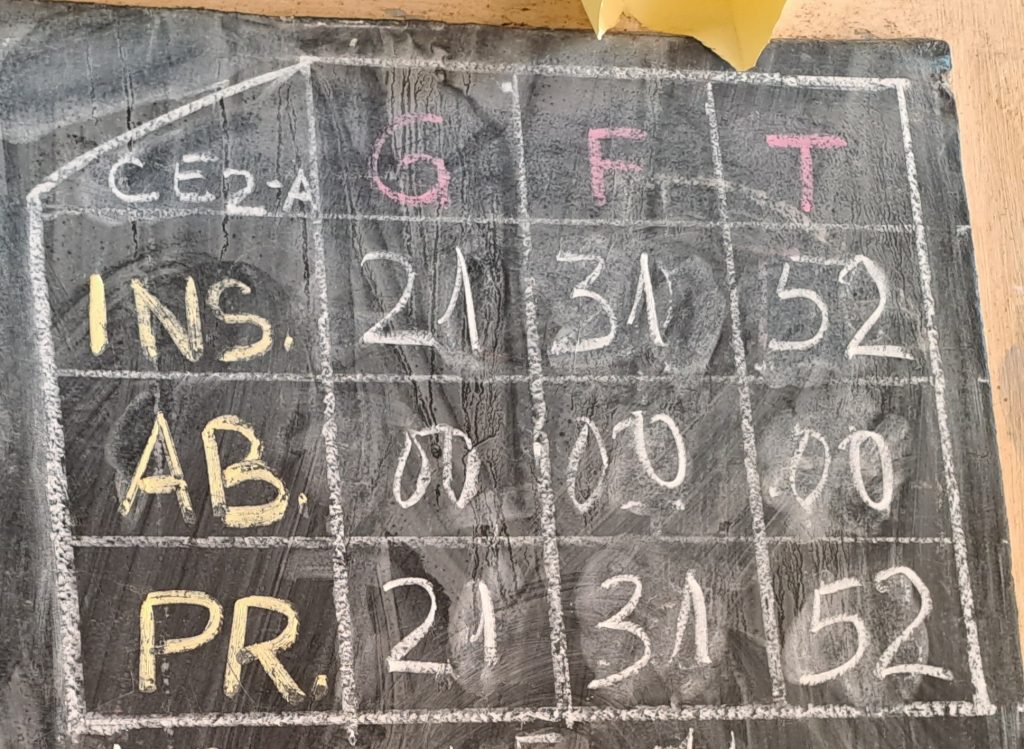 CE2-A G F T
INS. 21 31 52
AB. 00 00 00
PR. 21 31 52